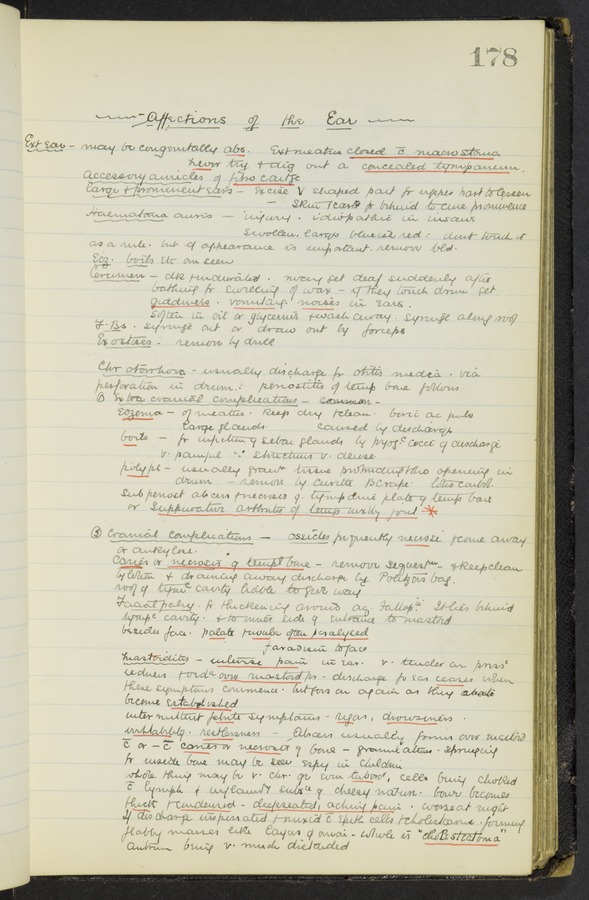 178
Affections of the Ear
Ext ear - may be congenitally abs. Ext meatus closed c̄ macrostoma
never try & dig out a concealed tympanum.
Accessory auricles of fibro cartge
Large & prominent ears - Excise V shaped part fr upper part to lessen
- skin & cartg fr behind to cure prominence
Haematoma auris - injury. idiopathic in insane
swollen, large blueish red: dont touch it
as a rule. but if appearance is important. remove bld.
Ecz. boils etc are seen
Cerumen - dk & indurated. many get deaf suddenly after
bathing fr swelling of wax - if they touch drum get
giddiness. vomiting noises in ears.
Soften in oil or glycerine & wash away. Syringe along roof
F. Bs. Syringe out or draw out by forceps
Exostoses. remove by drill
Chr otorrhoea. usually discharge fr otitis media. via
perforation in drum: periostitis of temp bone follows
Extra cranial complications - common -
Eczema - of meatus. keep dry & clean. boric ac pulv
large glands caused by discharge
boils - fr infection of sebac glands by pyogc cocci of discharge
v. painful ∵ structures v. dense
polypi - usually grann tissue protruding thro opening in
drum - remove by curette & scrape. lotio carbol.
Subperiost abscess & necrosis of tympanic plate of temp bone
or suppurative arthritis of temp maxly joint *
② Cranial complications - ossicles frequently necrose & come away
or ankylose.
Caries or necrosis of templ bone - remove sequestrm - & keep clean
by lotion & drawing away discharge by Politzers bag.
roof of tymc cavity liable to give way
Facial palsy. fr thickening around aq. Fallopii. It lies behind
tympc cavity. & to inner side of entrance to mastoid
besides face. palate & uvula often paralysed
faradism to face
Mastoiditis - intense pain in ear. v. tender on press
redness & oedema over mastoid prs - discharge fr ear ceases when
these symptoms commence. but goes on again as they
become established
intermittent febrile symptoms - rigors, drowsiness.
irritability. restlessness - Abscess usually forms over mastoid
c̄ or - c̄ caries or necrosis of bone - granulations springing
fr inside bone may be seen espy in children
whole thing may be v. chr. or even tubers, cells being choked
c̄ lymph & subsce of cheesy nature. bone becomes
thick & condensed - deepseated, aching pain. worse at night
If discharge inspissated & mixed c̄ epith cells & cholesterine. forming
flabby masses like layers of onion - whole is "cholesteatoma"
antrum being v. much distended